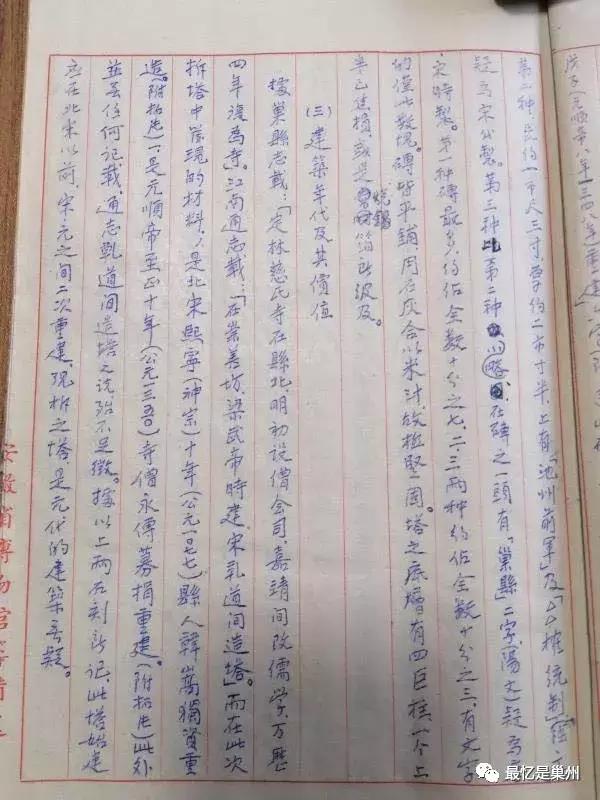 第二种:长约一市尺三寸,厚约二市寸半,上有「池州前軍」及「
疑为宋代製。第三种 第二种 略 ,在磚之一頭有「巢縣」二字(陽文)疑为
宋時製。第一种磚最多,約佔全数十分之七,二三两种約佔全数十分之三,有文字
的僅此数塊。磚皆平鋪,用石灰合以米汁,故極堅固。塔之底層有四巨
年已建損,或是 燒
(三)建築年代及其價值
據巢縣志載:「定林慈氏寺在縣北,明初設僧会司,嘉靖間改儒学,万歷
四年復为寺。」江南通志載:「在崇善坊,梁武帝時建,宋乾道間造塔」而在此次
拆塔中发現的材料,一是北宋熙寧(神宗)十年(公元一〇七七)縣人韓嵩獨資重
造。(附拓片)一是元順帝至正十年(公元一三五〇)寺僧永傳募捐重建(附拓片)此外
並無任何記載,通志乾道間造塔之说,殆不足徵。據以上两石刻所記,此塔始建
应在北宋以前,宋元之间二次重建,現拆之塔是元代的建築无疑。
安徽省博物館
最忆是巢州